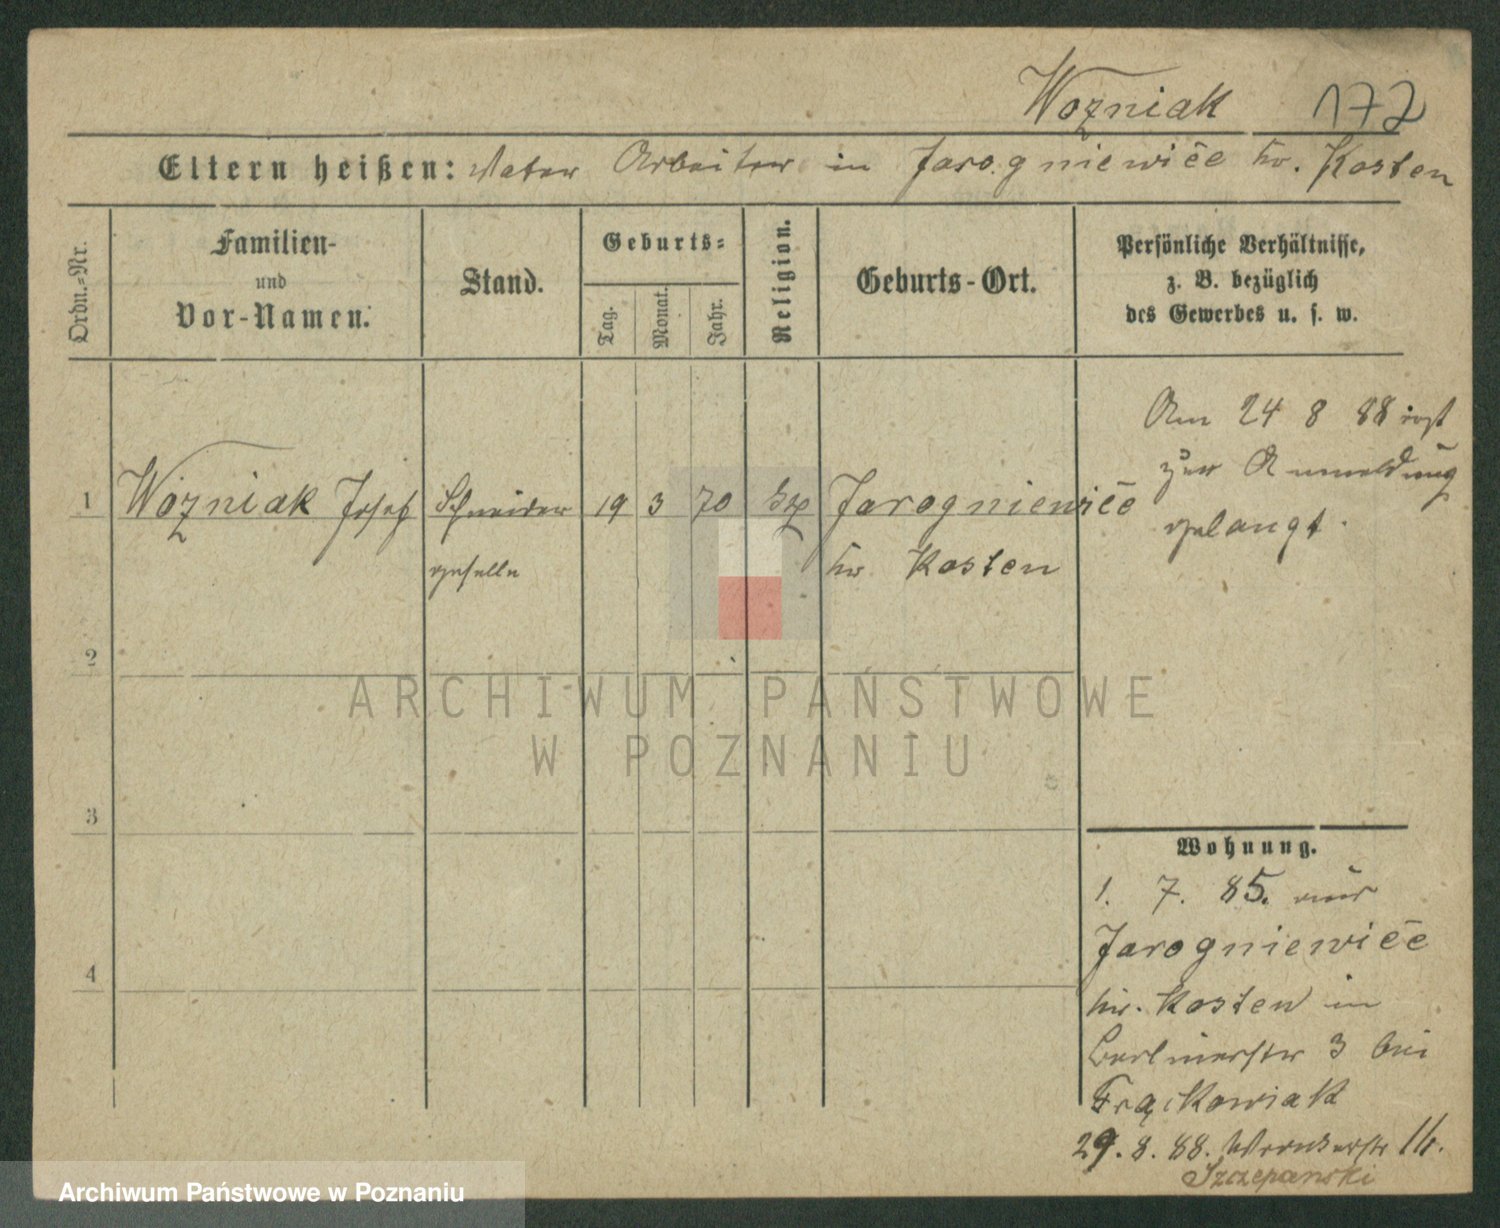 Wozniak 172
Eltern heißen: Vater Arbeiter in Jarogniewice kr. Kosten
Ordn.-Nr.
Familien-
und
Vor-Namen.
Stand.
Geburts-
Tag.
Monat.
Jahr.
Religion.
Geburts-Ort.
Persönliche Verhältnisse,
z. B. bezüglich
des Gewerbes u. s. w.
1 Wozniak Josef Schneider 19 3 70 Jarogniewice
geselle kr. Kosten
Am 24 8 88 erst
zur Anmeldung
gelangt.
2
3
4
Wohnung.
1. 7. 85. aus
Jarogniewice
kr. Kosten in
Berlinerstr 3 bei
Frąckowiak
29. 8. 88. 
Szczepanski
ARCHIWUM PAŃSTWOWE
W POZNANIU
Archiwum Państwowe w Poznaniu